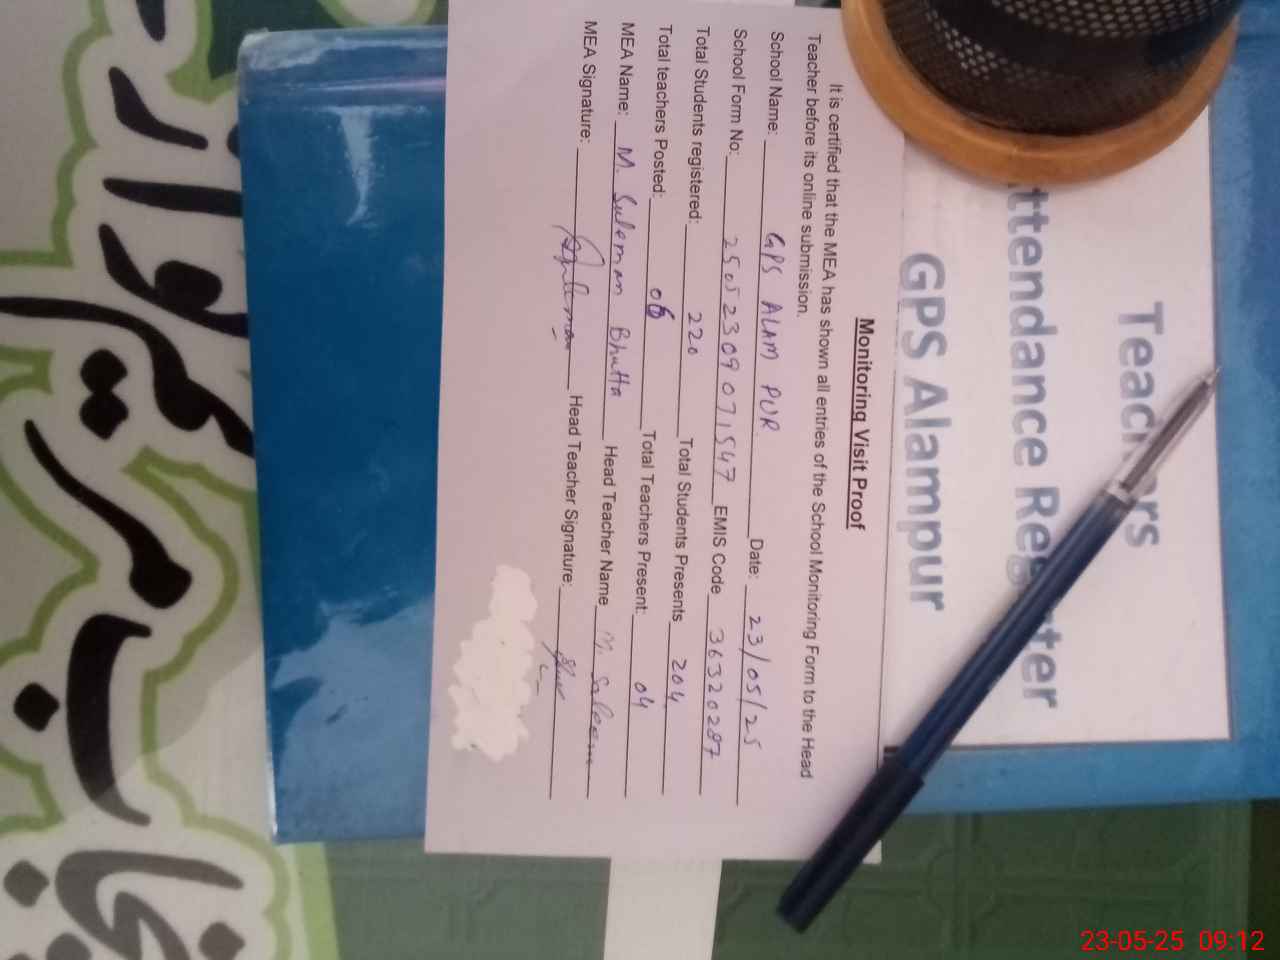 Teachers
Attendance Register
GPS Alampur
Monitoring Visit Proof
It is certified that the MEA has shown all entries of the School Monitoring Form to the Head
Teacher before its online submission.
School Name: GPS ALAM PUR Date: 23/05/25
School Form No: 25052309071547 EMIS Code 36320287
Total Students registered: 220 Total Students Presents 204
Total teachers Posted: 06 Total Teachers Present: 04
MEA Name: M. Suleman Bhutta Head Teacher Name M. Saleem
MEA Signature: Suleman Head Teacher Signature:
23-05-25 09:12